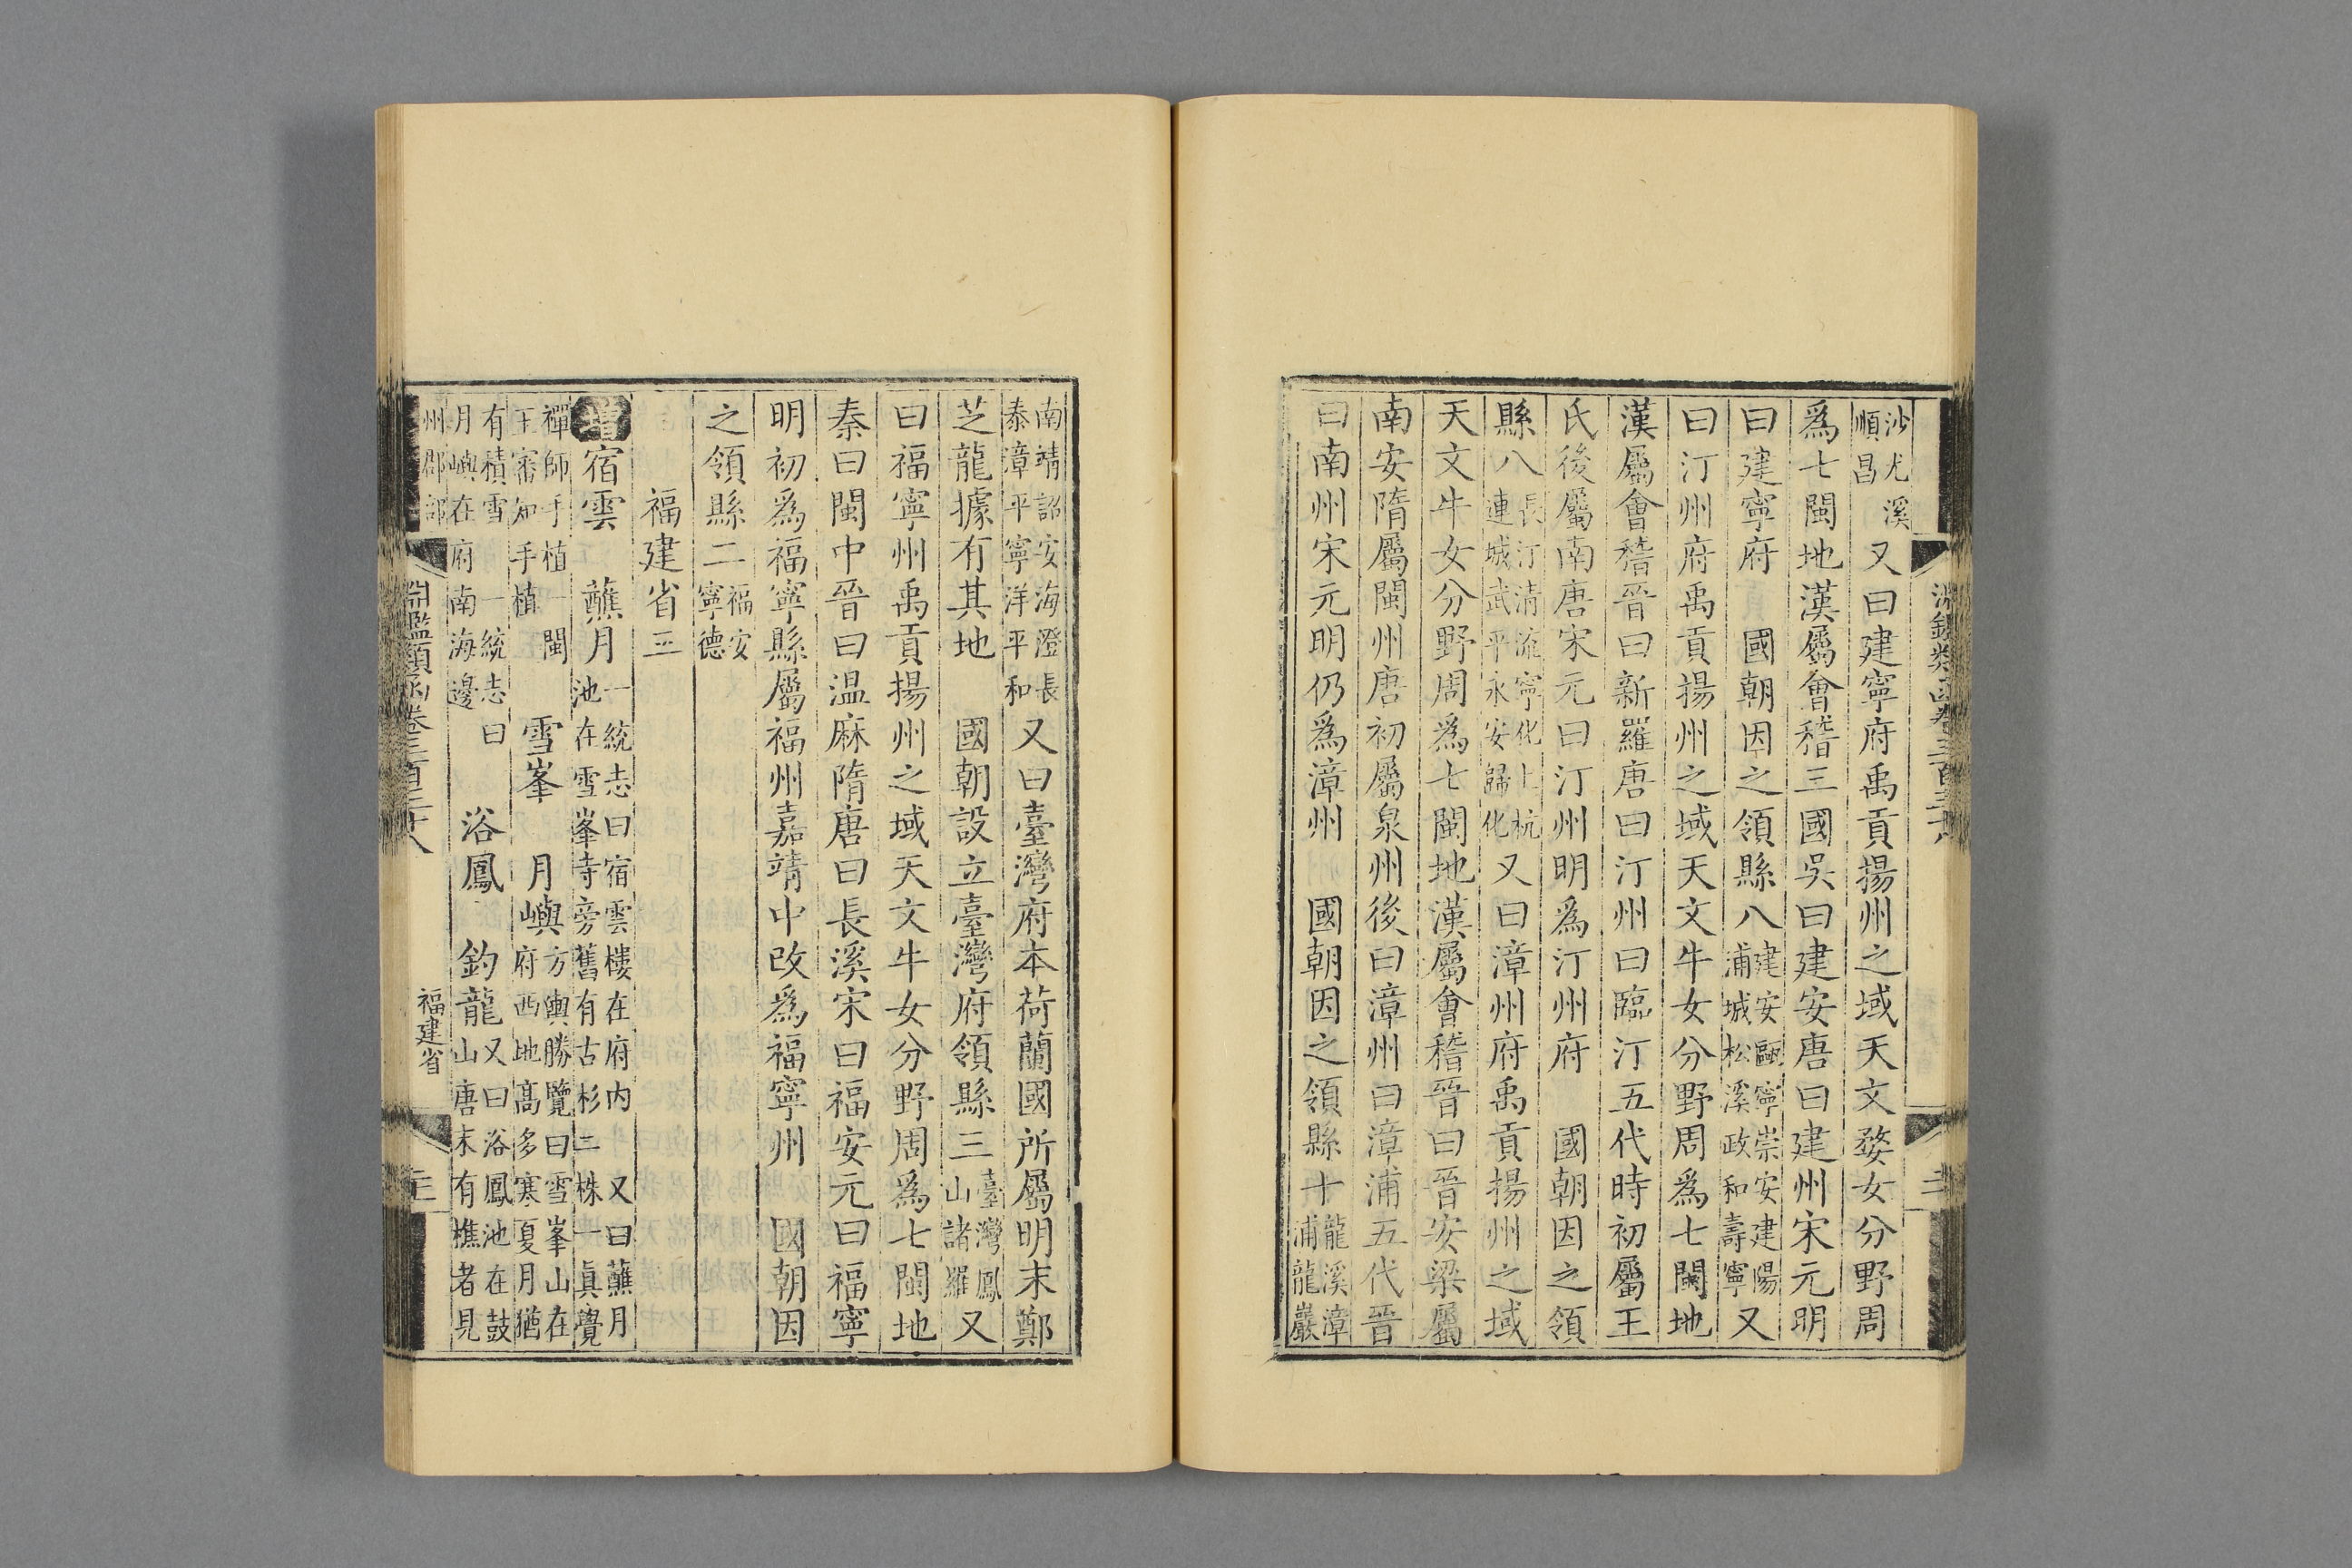 沙尤溪順昌又曰建寧府禹貢揚州之域天文婺女分野周
爲七閩地漢屬會稽三國吳曰建安唐曰建州宋元明
曰建寧府 國朝因之領縣八建安甌寧崇安建陽浦城松溪政和壽寧又
曰汀州府禹貢揚州之域天文牛女分野周爲七閩地
漢屬會稽晉曰新羅唐曰汀州曰臨汀五代時初屬王
氏後屬南唐宋元曰汀州明爲汀州府 國朝因之領
縣八長汀清流寧化上杭連城武平永安歸化又曰漳州府禹貢揚州之域
天文牛女分野周爲七閩地漢屬會稽晉曰晉安梁屬
南安隋屬閩州唐初屬泉州後曰漳州曰漳浦五代晉
曰南州宋元明仍爲漳州 國朝因之領縣十龍溪漳浦龍巖
南靖詔安海澄長泰漳平寧洋平和又曰臺灣府本荷蘭國所屬明末鄭
芝龍據有其地 國朝設立臺灣府領縣三臺灣鳳山諸羅又
曰福寧州禹貢揚州之域天文牛女分野周爲七閩地
秦曰閩中晉曰温麻隋唐曰長溪宋曰福安元曰福寧
明初爲福寧縣屬福州嘉靖中改爲福寧州 國朝因
之領縣二福安寧德
福建省三
增宿雲 蘸月一統志曰宿雲樓在府内 又曰蘸月池在雪峯寺旁舊有古杉二株一眞覺
禪師手植一閩王審知手植 雪峯 月嶼方輿勝覽曰雪峯山在府西地高多寒夏月猶
有積雪 一統志曰月嶼在府南海邊 浴鳳 釣龍又曰浴鳳池在鼓山唐末有樵者見
淵鑑類函卷三百三十八
福建省
三